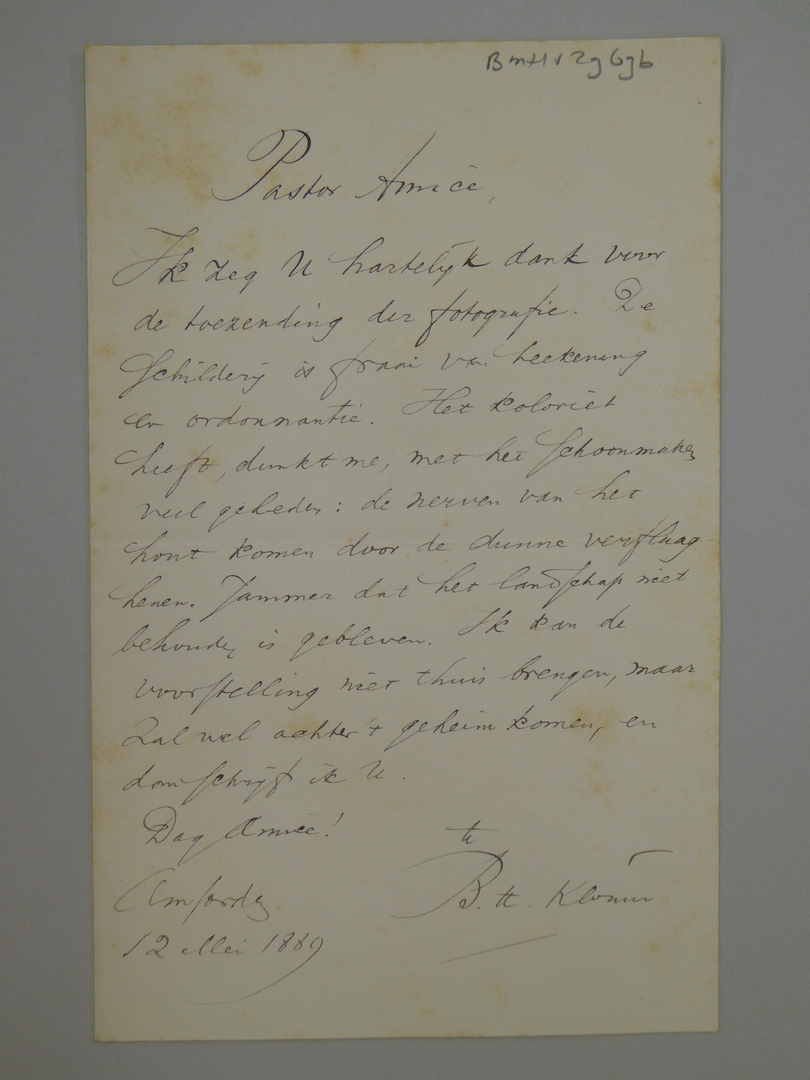 BMH v 2g6gb
Pastor Amice,
Ik zeg U hartelijk dank voor
de toezending der fotografie. De
Schilderij is fraai van teekening
en ordonnantie. Het koloriet
heeft, dunkt me, met het schoonmaken
veel geleden: de nerven van het
hout komen door de dunne verflaag
henen. Jammer dat het landschap niet
behouden is gebleven. Ik kan de
voorstelling niet thuis brengen, maar
zal wel achter 't geheim komen, en
dan schrijf ik U.
Dag Amice!
tt
B. H. Klönne
Amsterdam
12 Mei 1889